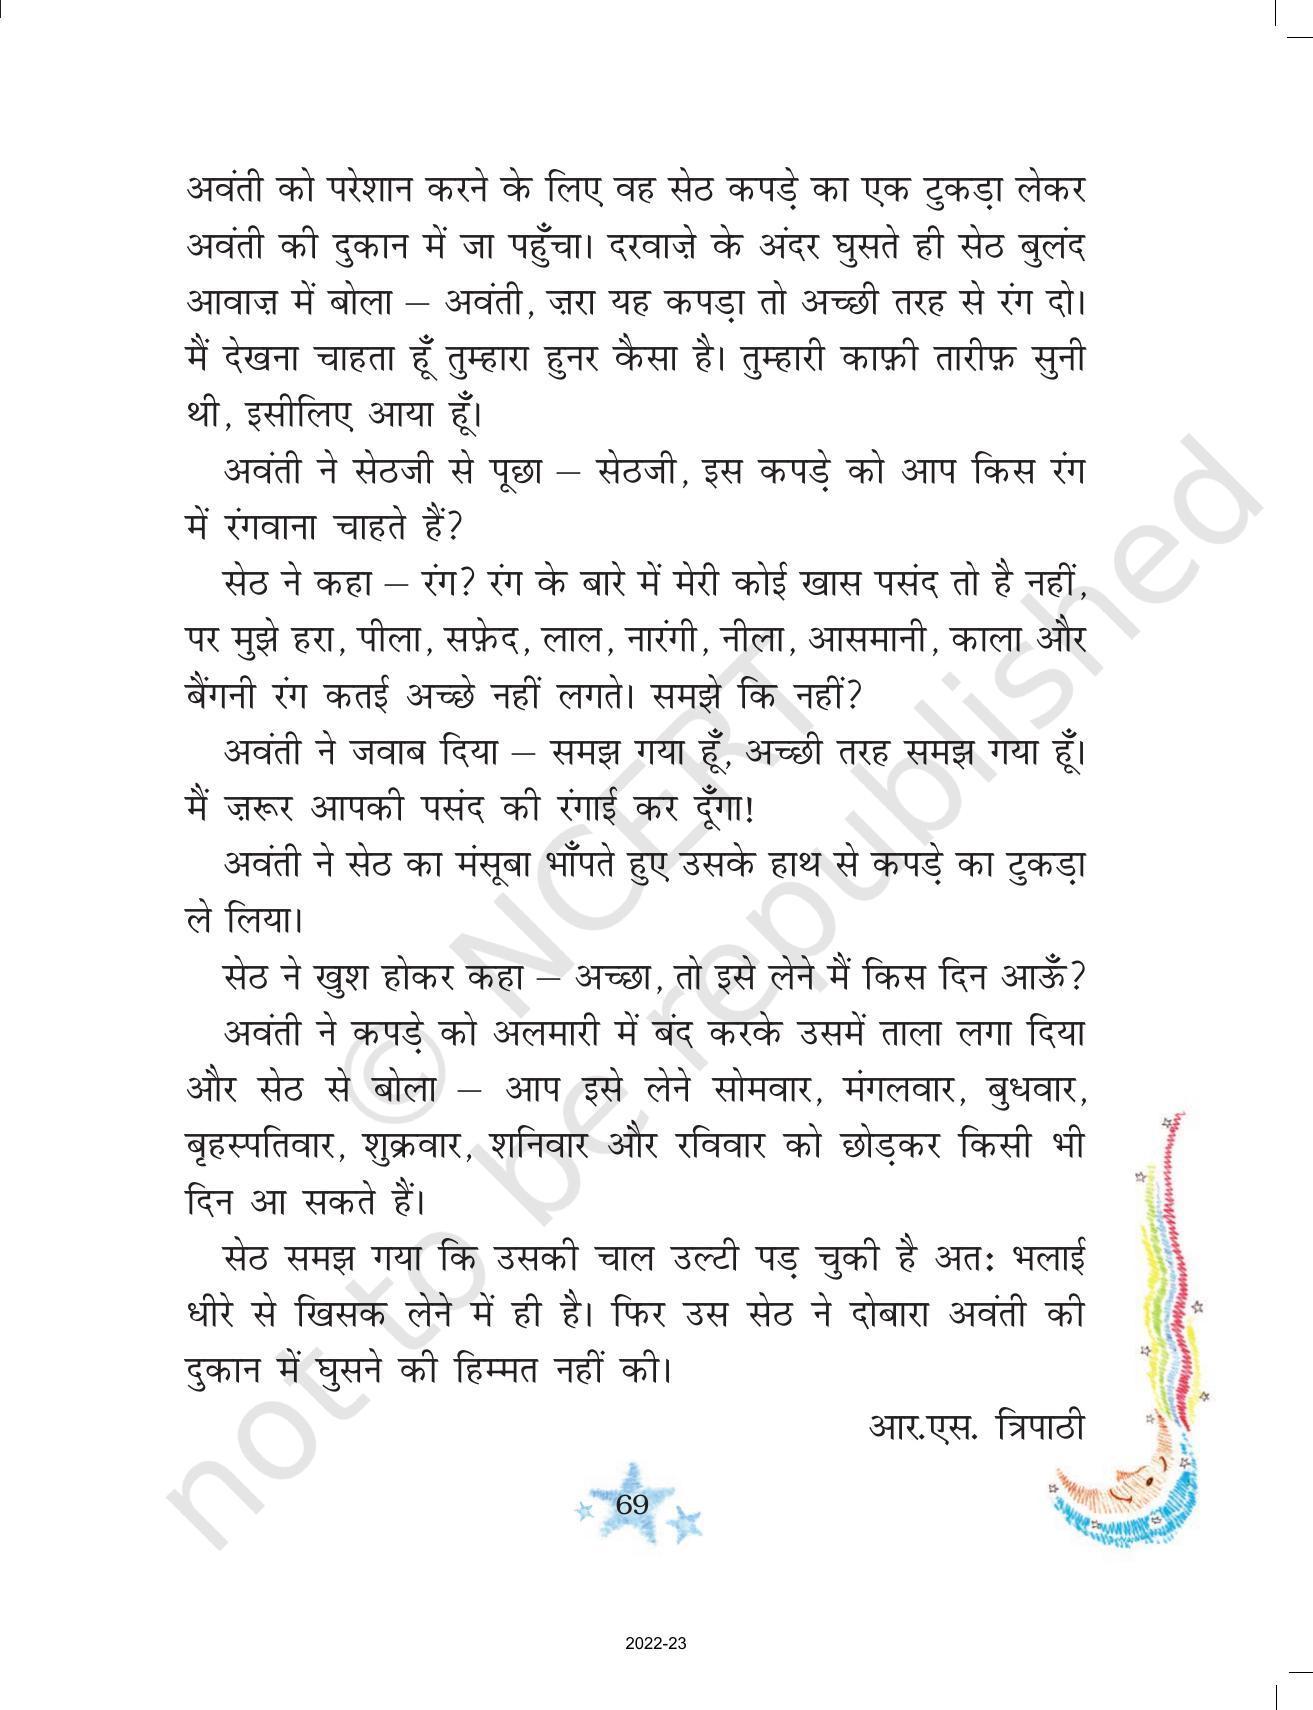 अवंती को परेशान करने के लिए वह सेठ कपड़े का एक टुकड़ा लेकर
अवंती की दुकान में जा पहुँचा। दरवाज़े के अंदर घुसते ही सेठ बुलंद
आवाज़ में बोला – अवंती, ज़रा यह कपड़ा तो अच्छी तरह से रंग दो।
मैं देखना चाहता हूँ तुम्हारा हुनर कैसा है। तुम्हारी काफ़ी तारीफ़ सुनी
थी, इसीलिए आया हूँ।
अवंती ने सेठजी से पूछा – सेठजी, इस कपड़े को आप किस रंग
में रंगवाना चाहते हैं?
सेठ ने कहा – रंग? रंग के बारे में मेरी कोई खास पसंद तो है नहीं,
पर मुझे हरा, पीला, सफ़ेद, लाल, नारंगी, नीला, आसमानी, काला और
बैंगनी रंग कतई अच्छे नहीं लगते। समझे कि नहीं?
अवंती ने जवाब दिया – समझ गया हूँ, अच्छी तरह समझ गया हूँ।
मैं ज़रूर आपकी पसंद की रंगाई कर दूँगा!
अवंती ने सेठ का मंसूबा भाँपते हुए उसके हाथ से कपड़े का टुकड़ा
ले लिया।
सेठ ने खुश होकर कहा – अच्छा, तो इसे लेने मैं किस दिन आऊँ?
अवंती ने कपड़े को अलमारी में बंद करके उसमें ताला लगा दिया
और सेठ से बोला – आप इसे लेने सोमवार, मंगलवार, बुधवार,
बृहस्पतिवार, शुक्रवार, शनिवार और रविवार को छोड़कर किसी भी
दिन आ सकते हैं।
सेठ समझ गया कि उसकी चाल उल्टी पड़ चुकी है अतः भलाई
धीरे से खिसक लेने में ही है। फिर उस सेठ ने दोबारा अवंती की
दुकान में घुसने की हिम्मत नहीं की।
आर.एस. त्रिपाठी
69
2022-23
© NCERT
not to be republished